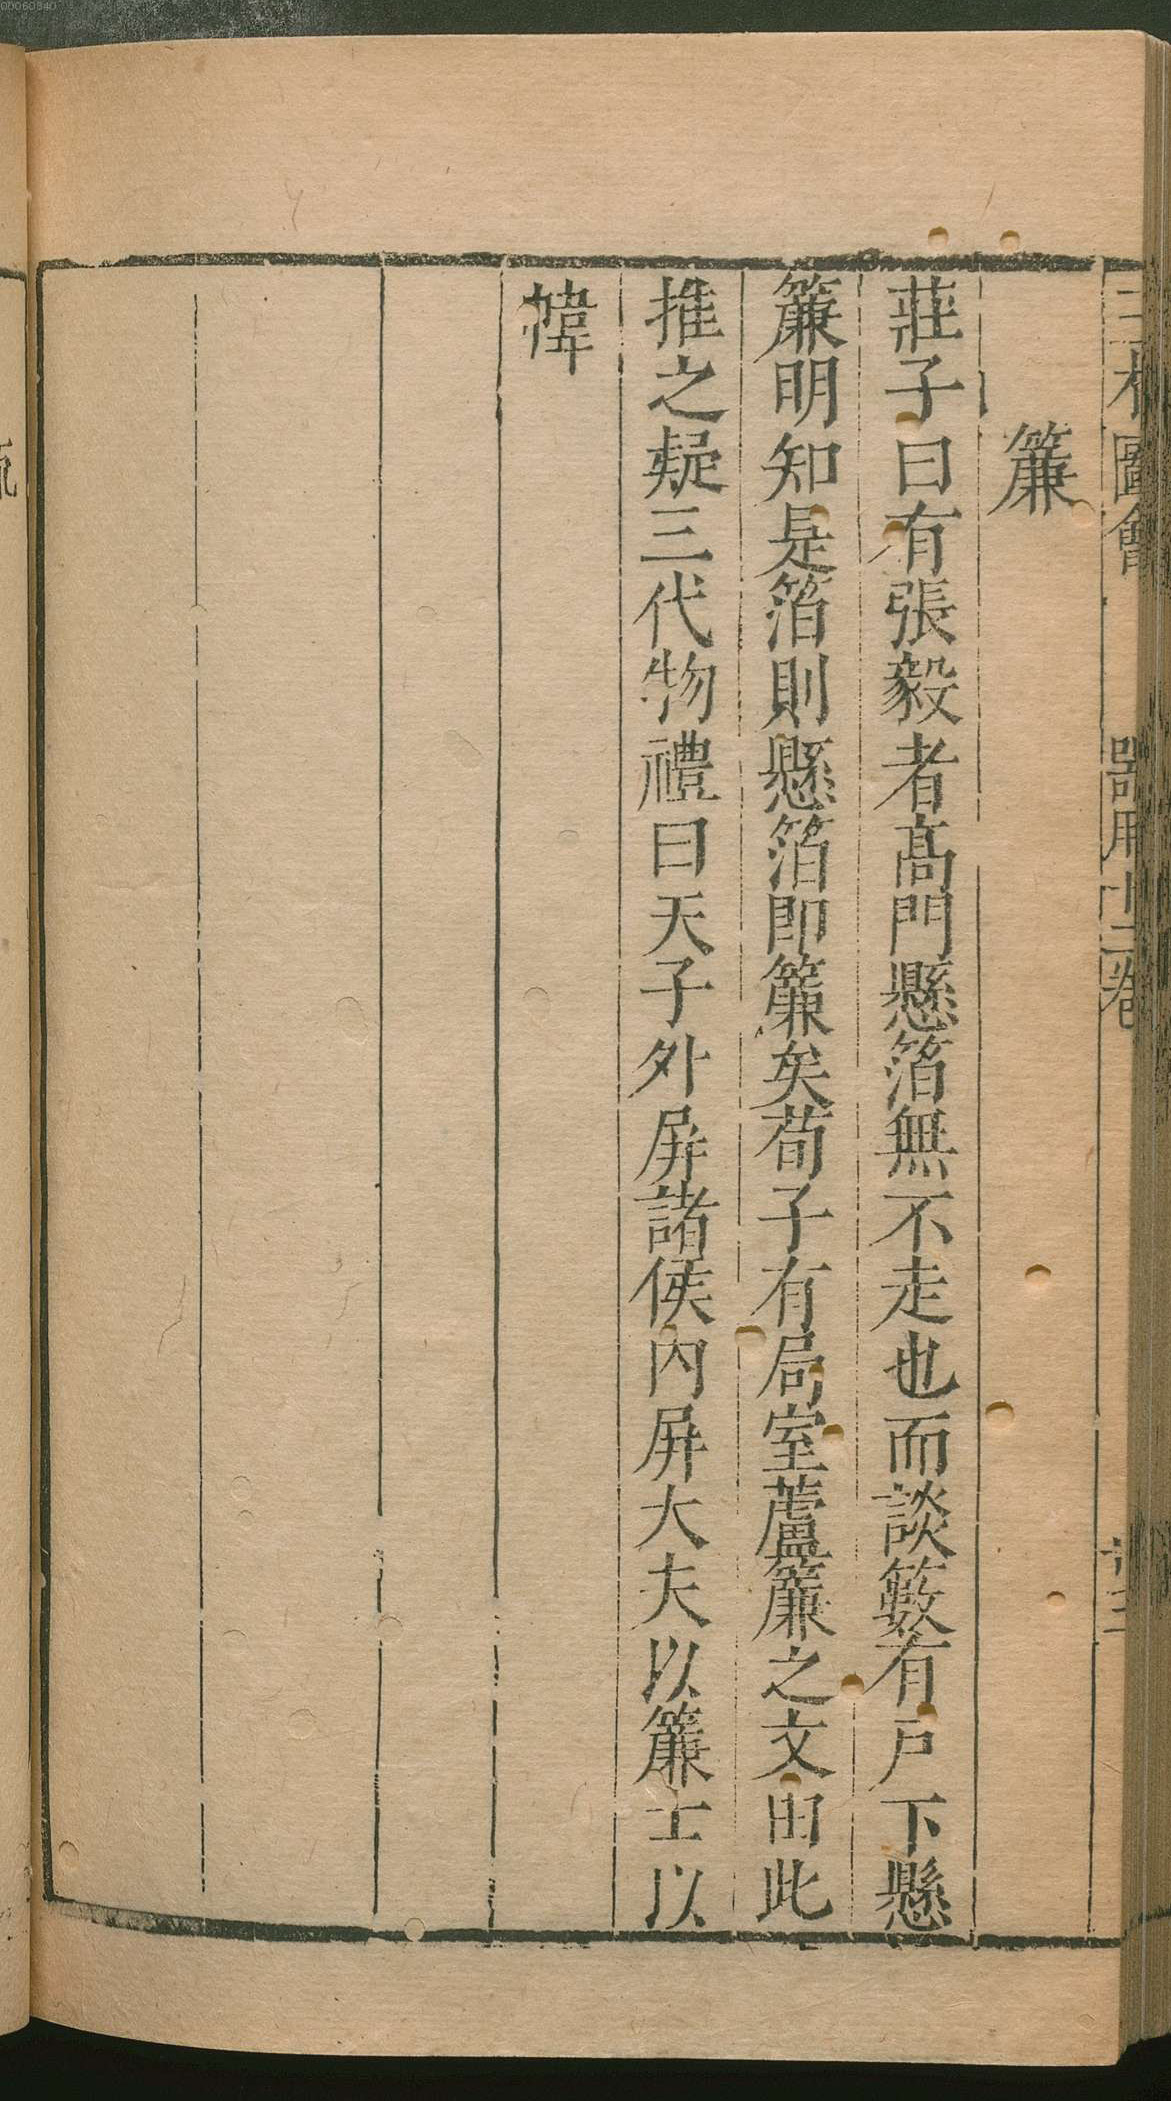 三才圖會 器用十二卷
簾
莊子曰有張毅者高門懸箔無不走也而談籔有戸下懸
簾明知是箔則懸箔即簾矣荀子有局室蘆簾之文由此
推之疑三代物禮曰天子外屏諸侯內屏大夫以簾士以
幃
00060840